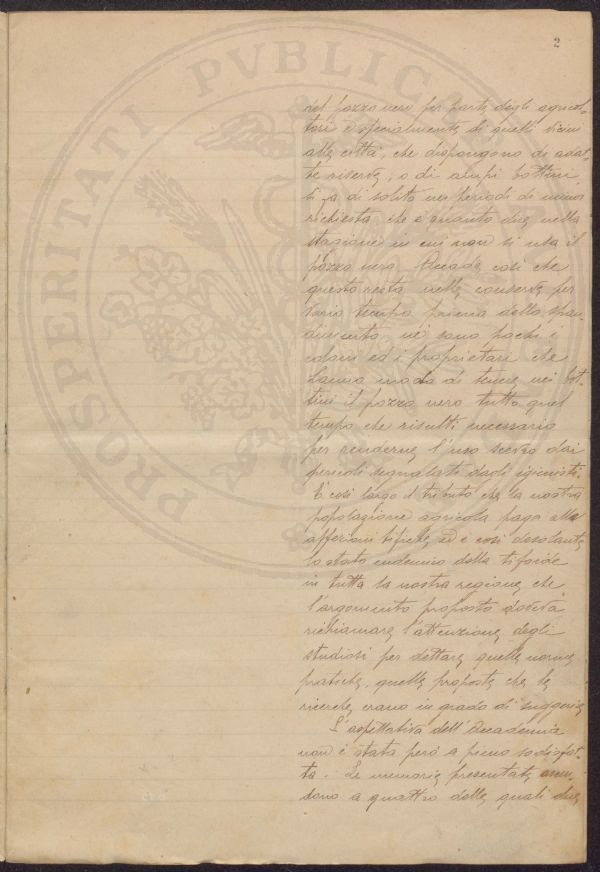 2
PROSPERITATI PVBLICAE
del pozzo nero per parte degli agricol-
tori e specialmente di quelli vicini
alle città, che dispongono di adat-
te riserve, o di ampi bottini
si fa di solito nei periodi di minor
richiesta che è quanto dire nella
stagione in cui non si usa il
pozzo nero. Accade così che
questo resta nelle conserve per
vario tempo prima dello span-
dimento, nè sono pochi i
coloni ed i proprietari che
hanno modo di tenere nei bot-
tini il pozzo nero tutto quel
tempo che risulti necessario
per renderne l'uso scevro dai
pericoli segnalati dagli igienisti.
È così largo il tributo che la nostra
popolazione agricola paga alle
affezioni tifiche, ed è così desolante
lo stato endemico della tifoide
in tutta la nostra regione, che
l'argomento proposto doveva
richiamare l'attenzione degli
studiosi per dettare quelle norme
pratiche, quelle proposte che le
ricerche erano in grado di suggerire
L'aspettativa dell'Accademia
non è stata però a pieno sodisfat-
ta. Le memorie presentate ascen-
dono a quattro delle quali due